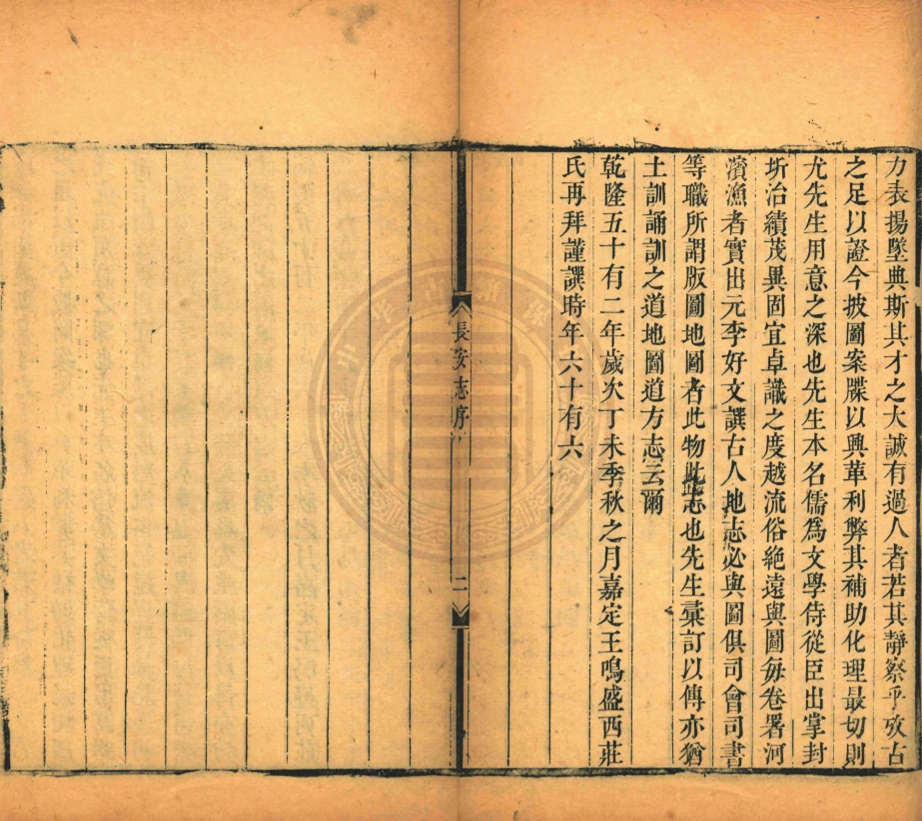 力表揚墜典斯其才之大誠有過人者若其靜察乎攷古
之足以證今披圖案牒以興革利弊其補助化理最切則
尤先生用意之深也先生本名儒為文學侍從臣出掌封
圻治績茂異固宜卓識之度越流俗絶遠與圖每卷署河
濱漁者實出元李好文譔古人地志必與圖俱司會司書
等職所謂版圖地圖者此物此志也先生彙訂以傳亦猶
土訓誦訓之道地圖道方志云爾
乾隆五十有二年歲次丁未季秋之月嘉定王鳴盛西莊
氏再拜謹譔時年六十有六
長安志序
二